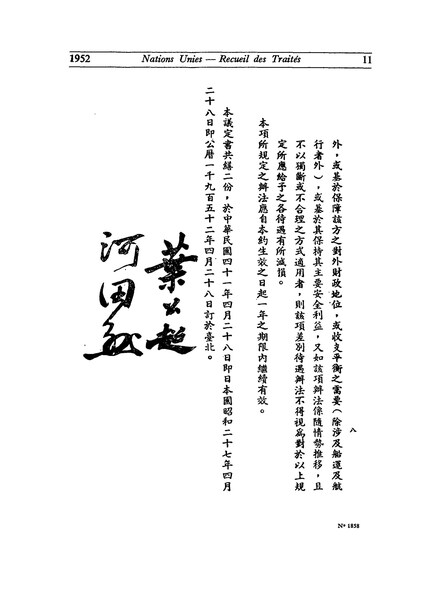 1952
Nations Unies — Recueil des Traités
11
八
外，或基於保障該方之對外財政地位，或收支平衡之需要（除涉及船運及航
行者外），或基於其保持其主要安全利益，又如該項辦法係隨情勢推移，且
不以獨斷或不合理之方式適用者，則該項差別待遇辦法不得視為對於以上規
定所應給予之各待遇有所減損。
本項所規定之辦法應自本約生效之日起一年之期限內繼續有效。
本議定書共繕二份，於中華民國四十一年四月二十八日即日本國昭和二十七年四月
二十八日即公曆一千九百五十二年四月二十八日訂於臺北。
葉公超
河田烈
Nº 1858